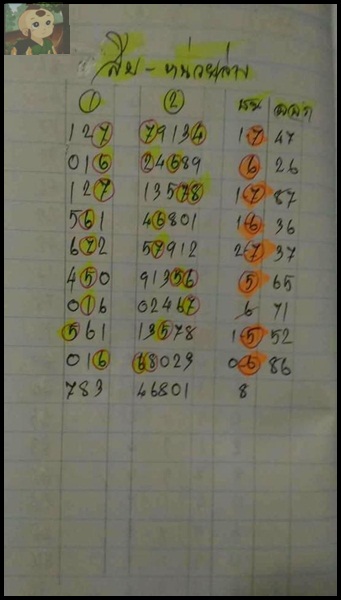 สิบ - หน่วยล่าง
1 2 ชน ออก
127 79134 1-7 47
016 24689 6 26
127 13578 1-7 87
561 46801 1-6 36
672 57912 2-7 37
450 91356 5 65
016 02467 6 71
561 13578 1-5 52
016 68023 0-6 86
783 46801 8